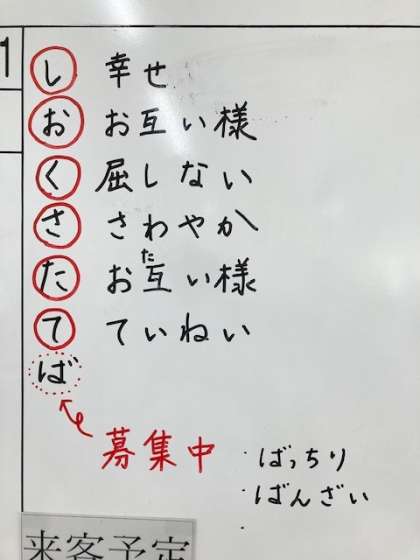 1
し 幸せ
お お互い様
く 屈しない
さ さわやか
た お互い様
た
て ていねい
ば
募集中
・ばっちり
・ばんざい
・
来客予定